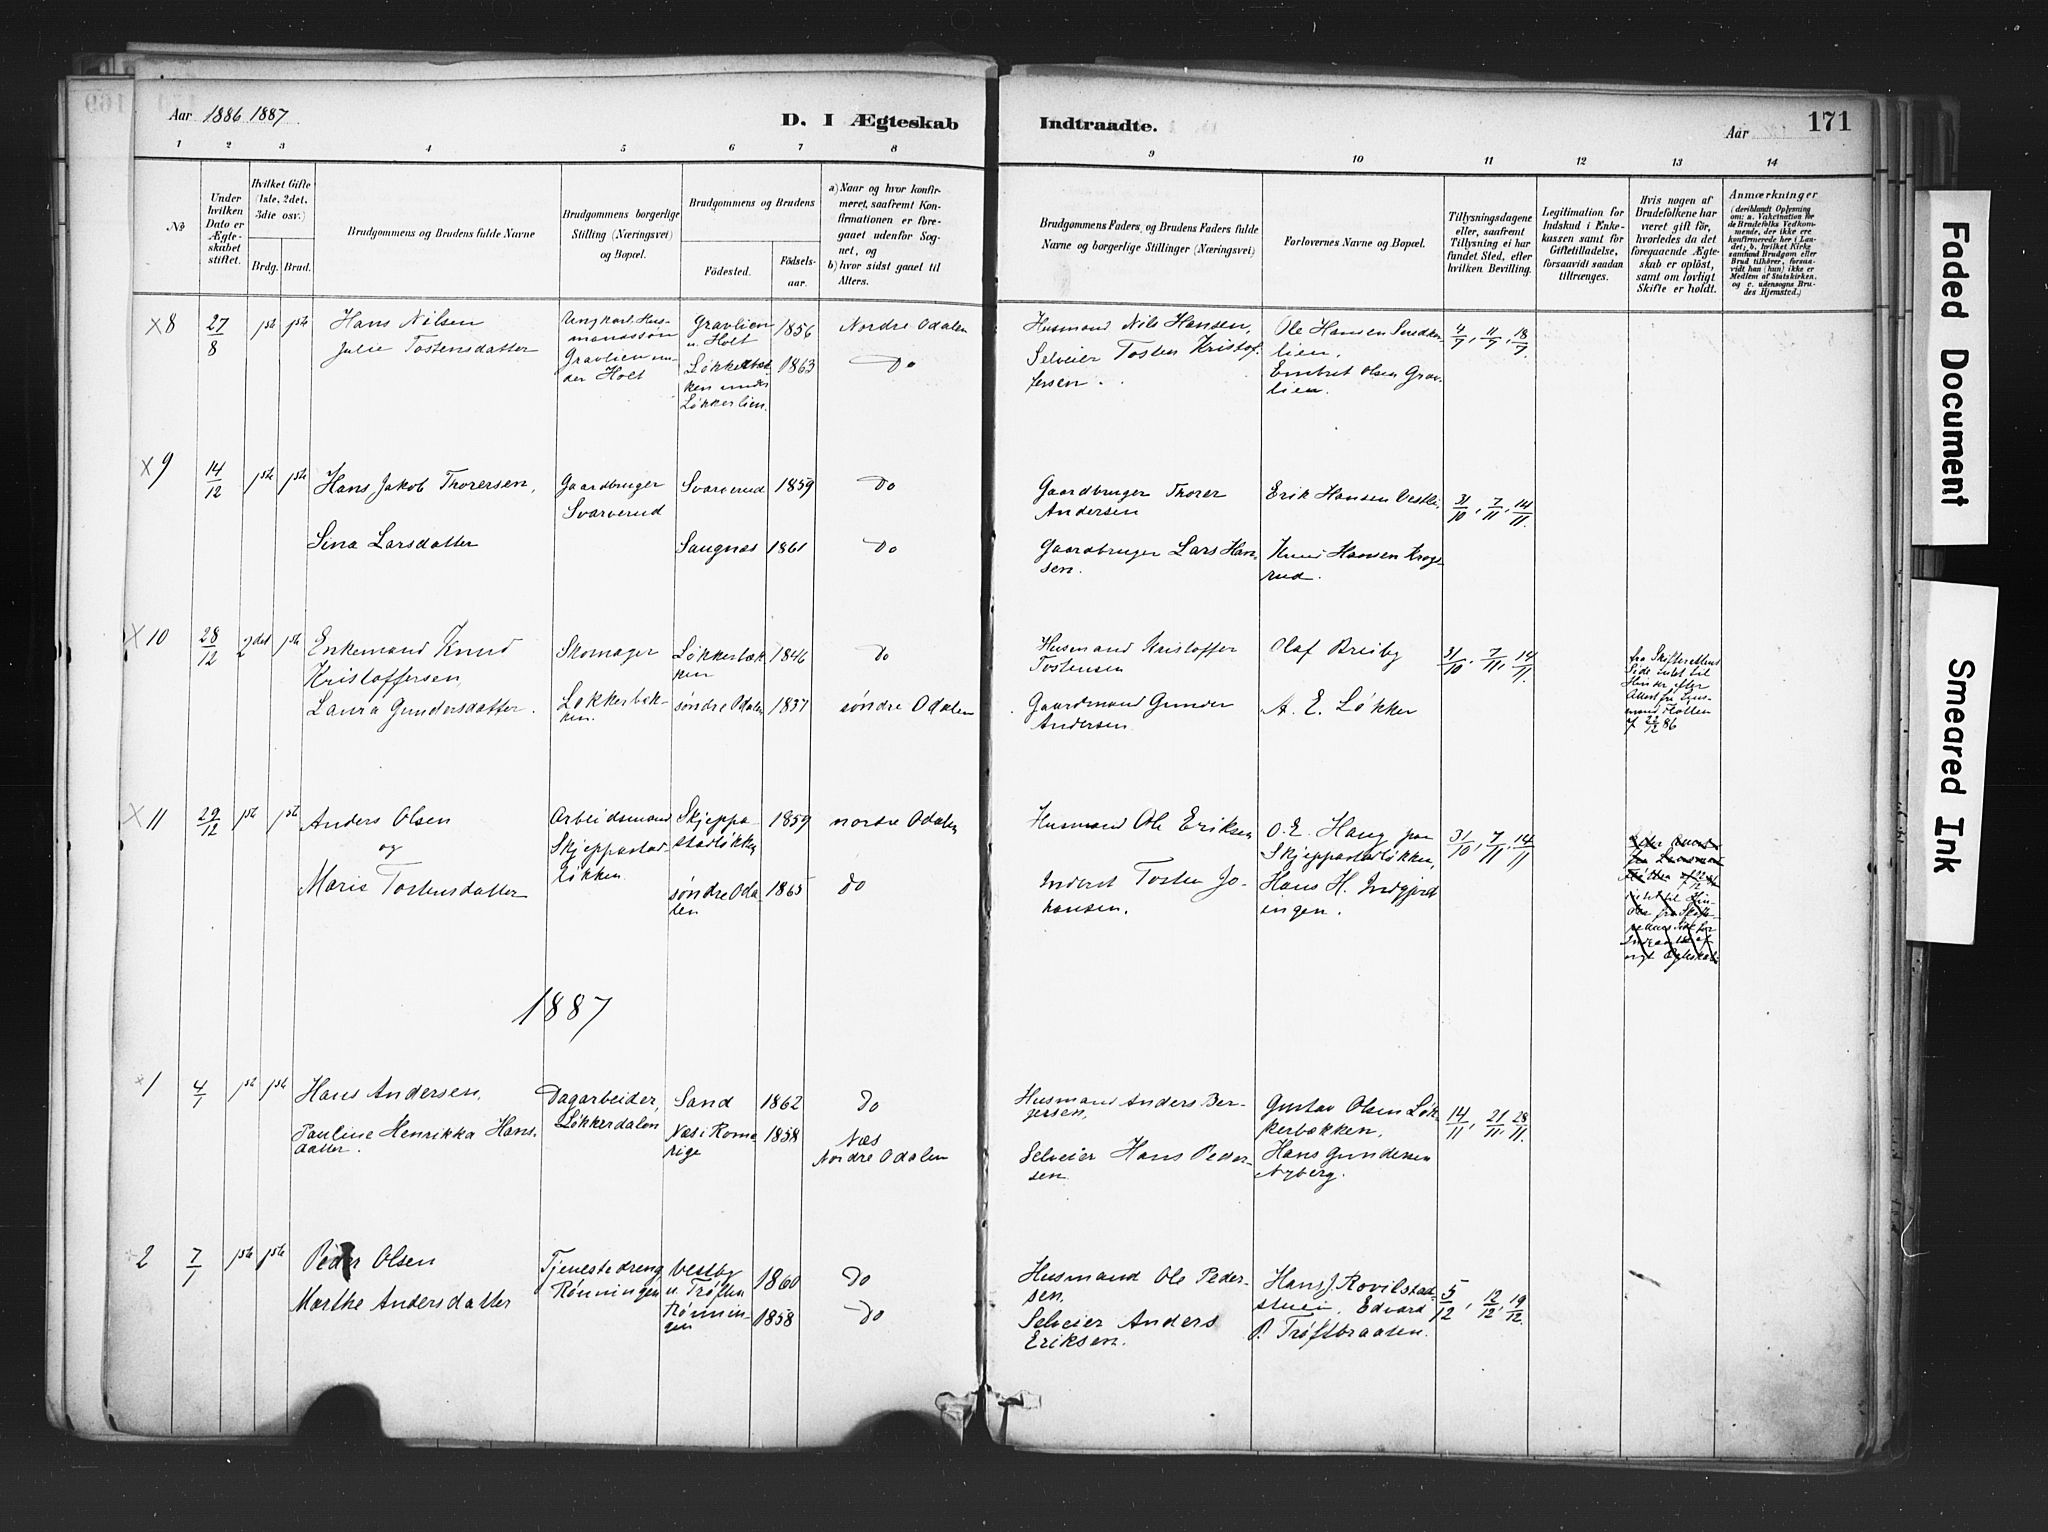 Aar 1886 1887
D. I Ægteskab
Indtraadte.
Aar
171
1 2 3 4 5 6 7 8 9 10 11 12 13 14
No
Under hvilken Dato er Ægteskabet stiftet.
Hvilket Gifte (1ste, 2det, 3die osv.)
Brdg. Brud.
Brudgommens og Brudens fulde Navne
Brudgommens borgerlige Stilling (Næringsvei) og Bopæl.
Brudgommens og Brudens
Födested.
Födselsaar.
a) Naar og hvor konfirmeret, saafremt Konfirmationen er foregaaet udenfor Sognet, og
b) hvor sidst gaaet til Alters.
Brudgommens Faders og Brudens Faders fulde Navne og borgerlige Stillinger (Næringsvei)
Forlovernes Navne og Bopæl.
Tillysningsdagene eller, saafremt Tillysning ei har fundet Sted, efter hvilken Bevilling.
Legitimation for Indskud i Enkekassen samt for Giftetilladelse, forsaavidt saadan tiltrænges.
Hvis nogen af Brudefolkene har været gift för, hvorledes da det foregaaende Ægteskab er oplöst, samt om lovligt Skifte er holdt.
Anmærkninger
(deriblandt Oplysning om: a. Vakcination for de Brudefolks Vedkommende, der ikke ere konfirmerede her i Landet; b. hvilket Kirkesamfund Brudgom eller Brud tilhörer, forsaavidt han (hun) ikke er Medlem af Statskirken, og c. udensogns Brudes Hjemsted.)
x 8 27/8 1ste 1ste Hans Nilsen
Julie Tostensdatter
Ungkarl Husmandssøn
Gravlien under Holt
Gravlien u. Holt 1856 Nordre Odalen
Løkkerbakken under Løkkerlien. 1863 Do
Husmand Nils Hansen,
Selveier Tosten Kristoffersen.
Ole Hansen
lien.
Embret Olsen Gravlien.
4/7, 11/7, 18/7
x 9 14/12 1ste 1ste Hans Jakob Thorersen,
Sina Larsdatter
Gaardbruger
Svarverud
Svarverud 1859 Do
Saugnæs 1861 Do
Gaardbruger Thorer Andersen
Gaardbruger Lars Hansen.
Erik Hansen Vestli
Knud Hansen Krogsrud.
31/10, 7/11, 14/11
x 10 28/12 2det 1ste Enkemand Knud
Kristoffersen,
Laura Gundersdatter.
Skomager
Løkkerbakken.
Løkkerbakken 1846 Do
søndre Odalen 1837 søndre Odalen
Husmand Kristoffer Tostensen
Gaardmand Gunder Andersen
Olaf Breiby
A. E. Løkker
31/10, 7/11, 14/11
fra Skifterettens Side intet til Hinder efter Attest fra Lensmand Flatten af 22/12 86
x 11 29/12 1ste 1ste Anders Olsen
og
Marie Tostensdatter
Arbeidsmand
Skjeppstadløkken
Skjeppstadløkken 1859 nordre Odalen
søndre Odalen 1865 Do
Husmand Ole Eriksen
Inderst Tosten Johansen.
O. E. Haug paa
Skjeppstadløkken,
Hans H. Indgjerdingen.
31/10, 7/11, 14/11
1887
x 1 4/1 1ste 1ste Hans Andersen,
Pauline Henrikka Hansdatter.
Dagarbeider,
Løkkerdalen
Sand 1862 Do
Næs i Romerige 1858 Næs
Nordre Odalen
Husmand Anders Bergersen,
Selveier Hans Pedersen
Gustav Olsen Løkkerbakken,
Hans Gundersen
Nyberg.
14/11, 21/11, 28/11
2 7/1 1ste 1ste Peder Olsen
Marthe Andersdatter
Tjenestedreng
Rønningen
Vestby u. Trøften 1860 Do
Rønningen 1858 Do
Husmand Ole Pedersen.
Selveier Anders Eriksen.
Hans J. Rovilstadstuen, Edvard
P. Trøftbraaten.
5/12, 12/12, 19/12
Faded Document
Smeared Ink